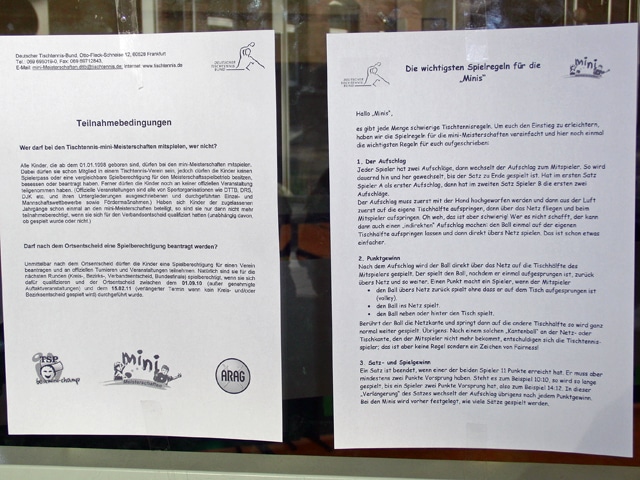 Deutscher Tischtennis-Bund, Otto-Fleck-Schneise 12, 60528 Frankfurt
Tel.: 069 695019-0, Fax: 069 69712843,
E-Mail: mini-Meisterschaften.dttb@tischtennis.de, Internet: www.tischtennis.de
DEUTSCHER
TISCHTENNIS
BUND
Teilnahmebedingungen
Wer darf bei den Tischtennis-mini-Meisterschaften mitspielen, wer nicht?
Alle Kinder, die ab dem 01.01.1998 geboren sind, dürfen bei den mini-Meisterschaften mitspielen.
Dabei dürfen sie schon Mitglied in einem Tischtennis-Verein sein, jedoch dürfen die Kinder keinen
Spielerpass oder eine vergleichbare Spielberechtigung für den Meisterschaftsspielbetrieb besitzen,
besessen oder beantragt haben. Ferner dürfen die Kinder noch an keiner offiziellen Veranstaltung
teilgenommen haben. (Offizielle Veranstaltungen sind alle von Sportorganisationen wie DTTB, DRS,
DJK etc. und ihren Untergliederungen ausgeschriebenen und durchgeführten Einzel- und
Mannschaftswettbewerbe sowie Fördermaßnahmen.) Haben sich Kinder der zugelassenen
Jahrgänge schon einmal an den mini-Meisterschaften beteiligt, so sind sie nur dann nicht mehr
teilnahmeberechtigt, wenn sie sich für den Verbandsentscheid qualifiziert hatten (unabhängig davon,
ob gespielt wurde oder nicht.)
Darf nach dem Ortsentscheid eine Spielberechtigung beantragt werden?
Unmittelbar nach dem Ortsentscheid dürfen die Kinder eine Spielberechtigung für einen Verein
beantragen und an offiziellen Turnieren und Veranstaltungen teilnehmen. Natürlich sind sie für die
nächsten Runden (Kreis-, Bezirks-, Verbandsentscheid, Bundesfinale) spielberechtigt, wenn sie sich
dafür qualifizieren und der Ortsentscheid zwischen dem 01.09.10 (außer genehmigte
Auftaktveranstaltungen) und dem 15.02.11 (verlängerter Termin wenn kein Kreis- und/oder
Bezirksentscheid gespielt wird) durchgeführt wurde.
TSP
mini
Meisterschaften
ARAG
DEUTSCHER
TISCHTENNIS
BUND
Die wichtigsten Spielregeln für die
„Minis"
mini
Hallo „Minis",
es gibt jede Menge schwierige Tischtennisregeln. Um euch den Einstieg zu erleichtern,
haben wir die Spielregeln für die mini-Meisterschaften vereinfacht und hier noch einmal
die wichtigsten Regeln für euch aufgeschrieben:
1. Der Aufschlag
Jeder Spieler hat zwei Aufschläge, dann wechselt der Aufschlag zum Mitspieler. So wird
dauernd hin und her gewechselt, bis der Satz zu Ende gespielt ist. Hat im ersten Satz
Spieler A als erster Aufschlag, dann hat im zweiten Satz Spieler B die ersten zwei
Aufschläge.
Der Aufschlag muss zuerst mit der Hand hochgeworfen werden und dann aus der Luft
zuerst auf die eigene Tischhälfte aufspringen, dann über das Netz fliegen und beim
Mitspieler aufspringen. Oh weh, das ist aber schwierig! Wer es nicht schafft, der kann
dann auch einen „indirekten" Aufschlag machen: den Ball einmal auf der eigenen
Tischhälfte aufspringen lassen und dann direkt übers Netz spielen. Das ist schon etwas
einfacher.
2. Punktgewinn
Nach dem Aufschlag wird der Ball direkt über das Netz auf die Tischhälfte des
Mitspielers gespielt. Der spielt den Ball, nachdem er einmal aufgesprungen ist, zurück
übers Netz und so weiter. Einen Punkt macht ein Spieler, wenn der Mitspieler
• den Ball übers Netz zurück spielt ohne dass er auf dem Tisch aufgesprungen ist
(volley).
• den Ball ins Netz spielt.
• den Ball neben oder hinter den Tisch spielt.
Berührt der Ball die Netzkante und springt dann auf die andere Tischhälfte so wird ganz
normal weiter gespielt. Übrigens: Nach einem solchen „Kantenball" an der Netz- oder
Tischkante, den der Mitspieler nicht mehr bekommt, entschuldigen sich die Tischtennis-
spieler; das ist aber keine Regel sondern ein Zeichen von Fairness!
3. Satz- und Spielgewinn
Ein Satz ist beendet, wenn einer der beiden Spieler 11 Punkte erreicht hat. Er muss aber
mindestens zwei Punkte Vorsprung haben. Steht es zum Beispiel 10:10, so wird so lange
gespielt, bis ein Spieler zwei Punkte Vorsprung hat, also zum Beispiel 14:12. In dieser
„Verlängerung" des Satzes wechselt der Aufschlag übrigens nach jedem Punktgewinn.
Bei den Minis wird vorher festgelegt, wie viele Sätze gespielt werden.